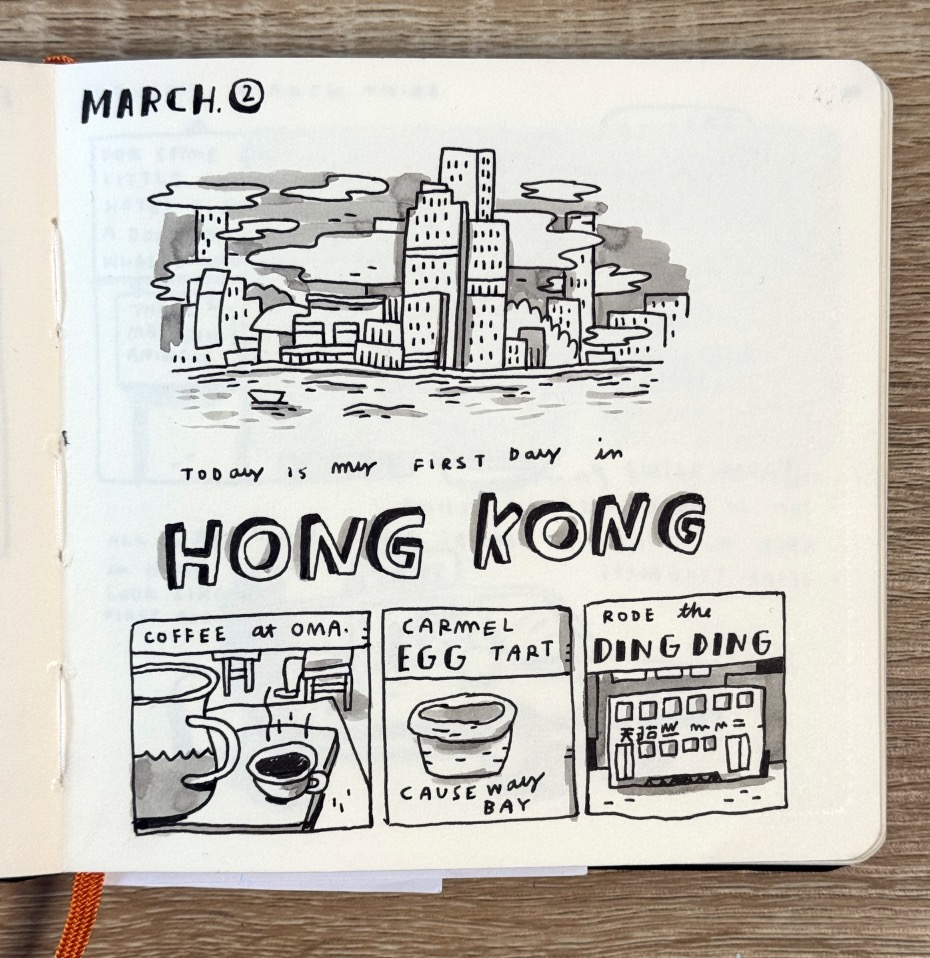 MARCH. ②
TODAY IS my FIRST DAY in
HONG KONG
COFFEE at OMA.
CARMEL
EGG TART
CAUSEWAY
BAY
RODE the
DING DING